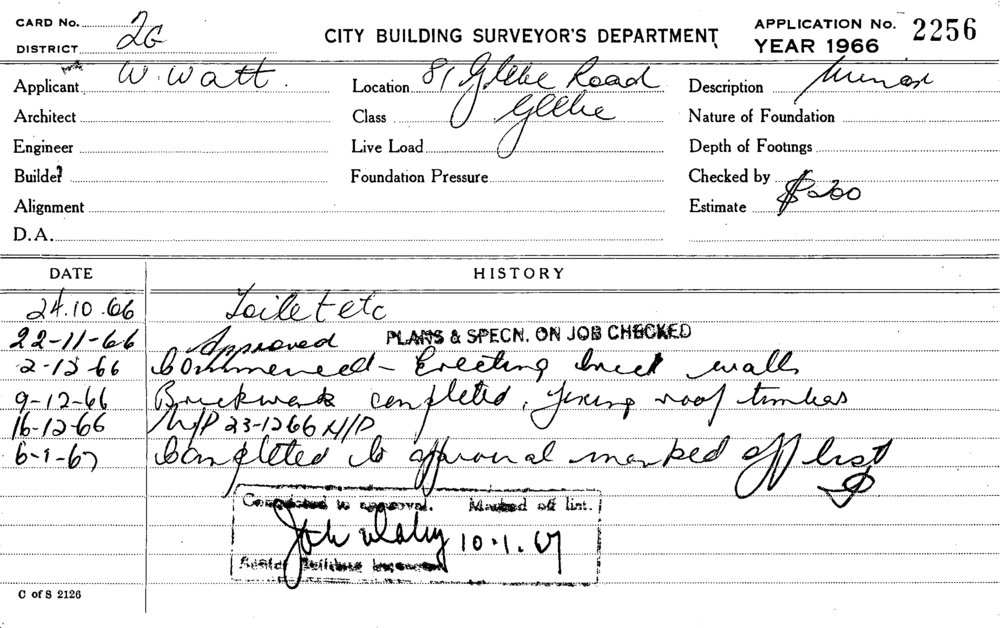 CARD No. 2G
DISTRICT
CITY BUILDING SURVEYOR'S DEPARTMENT
APPLICATION No. 2256
YEAR 1966
Applicant W. Watt.
Location 81 Glebe Road
Glebe
Description Minor
Architect
Class
Nature of Foundation
Engineer
Live Load
Depth of Footings
Builder
Foundation Pressure
Checked by
Alignment
Estimate $200
D.A.
DATE HISTORY
24.10.66 Toilet etc
22-11-66 Approved PLANS & SPECN. ON JOB CHECKED
2-12-66 Commenced - Erecting brick walls
9-12-66 Brickwork completed, fixing roof timbers
16-12-66 N/P 23-1266 N/P
6-1-67 Completed to approval marked off list
Completed to approval. Marked off list.
10.1.67
Senior Building Inspector
C of S 2126